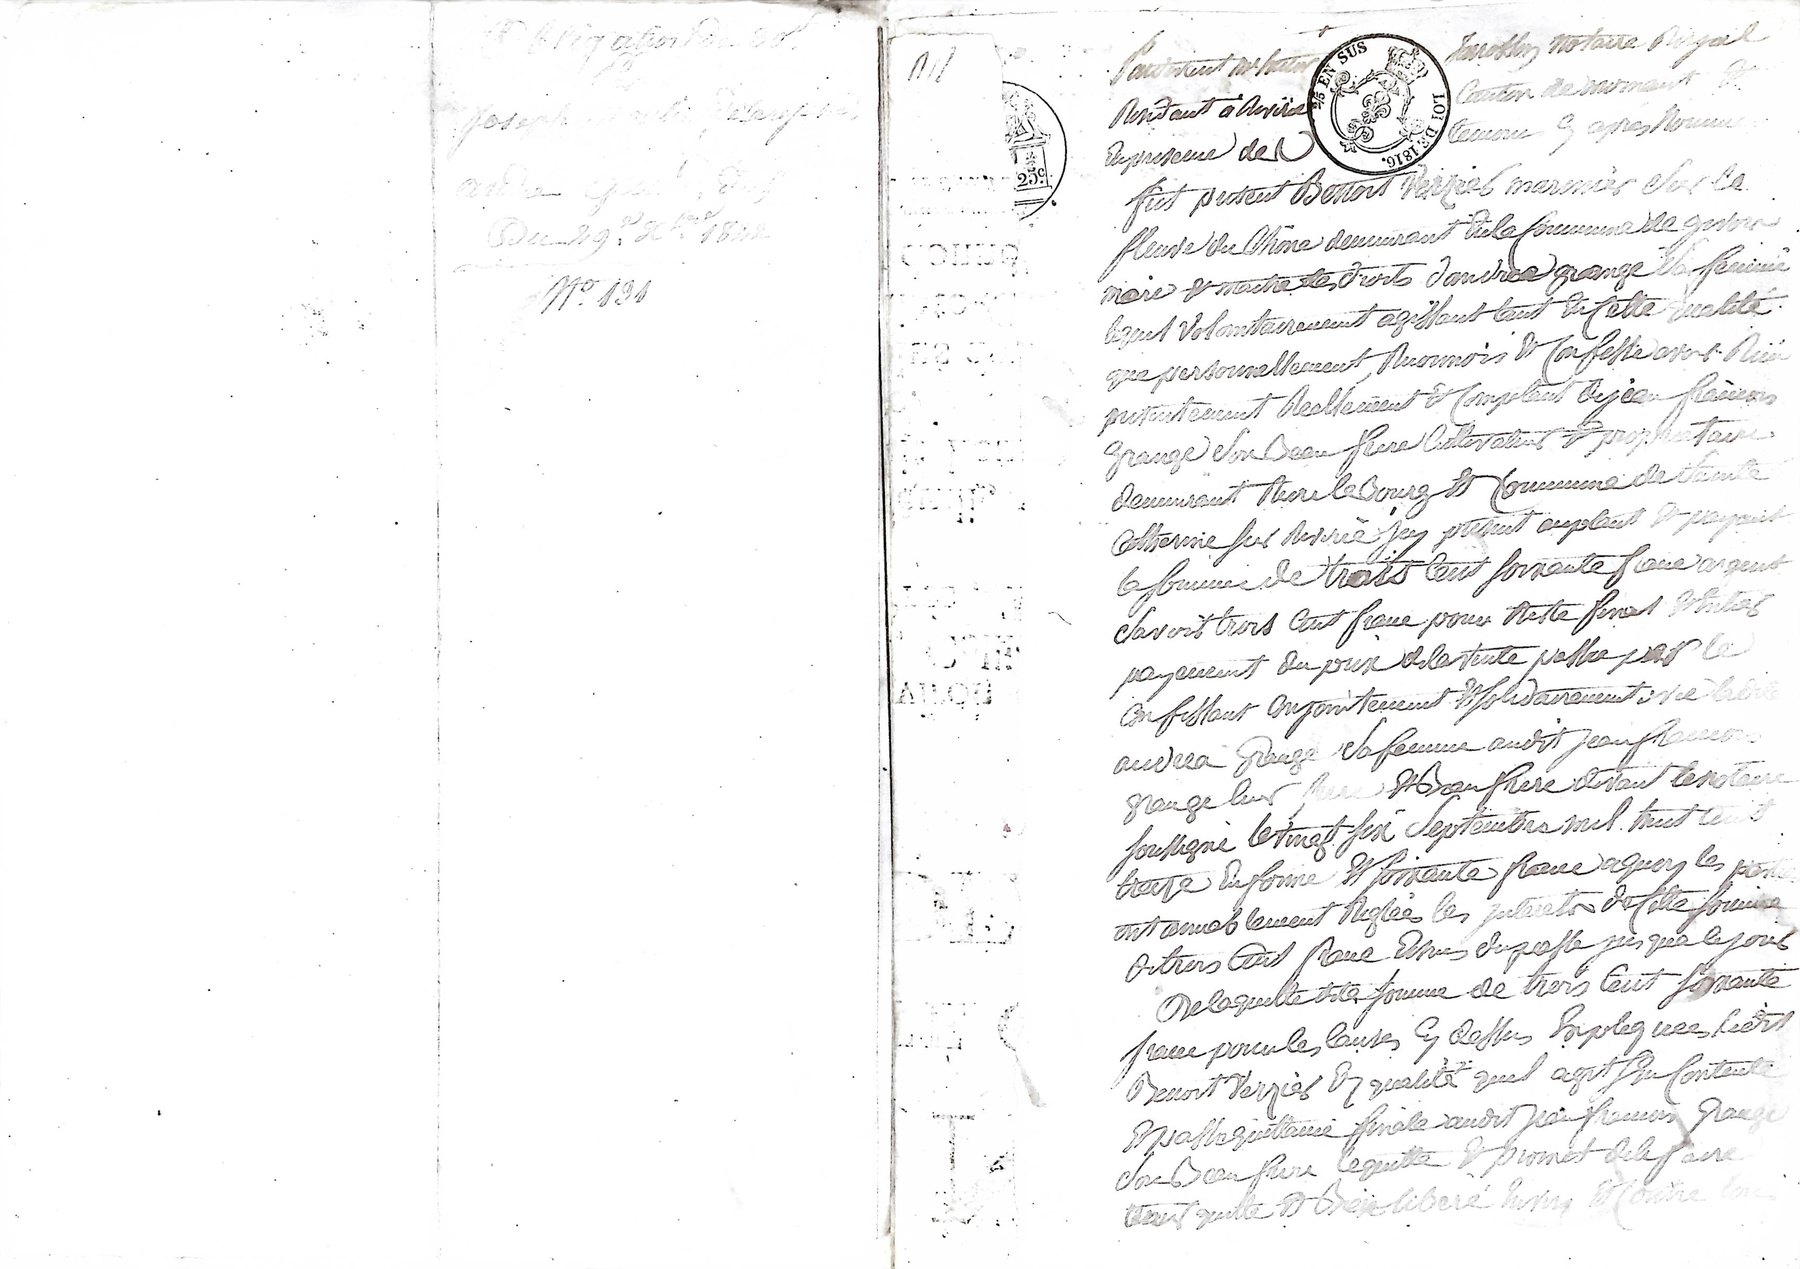 Obligation de
Joseph
andré
Du 29 1822
N° 131
25 c.
2/5 EN SUS
LOI DE 1816.
Pardevant notaire Royal
Résidant à Riverie Canton de mornant &
En presence des temoins Cy apres Nommes
fut present Benoit Verzier marinier Sur le
fleuve du Rhône demeurant En la Commune de givors
mari & maitre des droits d'andrea grange Sa femme
lequel Volontairement agissant tant En Cette qualité
que personnellement, Reconnois & Confesse avoir Reçu
presentement Reellement & Comptant de jean françois
grange Son Beau frere Cultivateur & proprietaire
demeurant Sur le Bourg & Commune de Sainte
Catherine Sur Riverie jcy present acceptant & payant
la Somme de trois Cent Soixante franc argent
Savoir trois Cent franc pour Reste final & Entier
payement du prix de la Vente passée par le
Confessant Conjointement & Solidairement avec ladite
andrea grange Sa femme audit jean francois
grange leur frere & Beau frere devant le notaire
Soussigné le Vingt Six Septembre mil huit Cent
treize En forme & Soixante franc a quoy les parties
ont amiablement Reglées les jnterets de Cette Somme
de trois Cent franc Echus du passé jusqua Ce jour
De laquelle dite Somme de trois Cent Soixante
franc pour les Causes Cy dessus Expliquees, Ledit
Benoit Verzier En qualité quil agit Sen Contente
& passe quittance finale audit jean francois grange
Son Beau frere le quitte & promet de le faire
tenir quitte & Bien liberé Envers & Contre tous